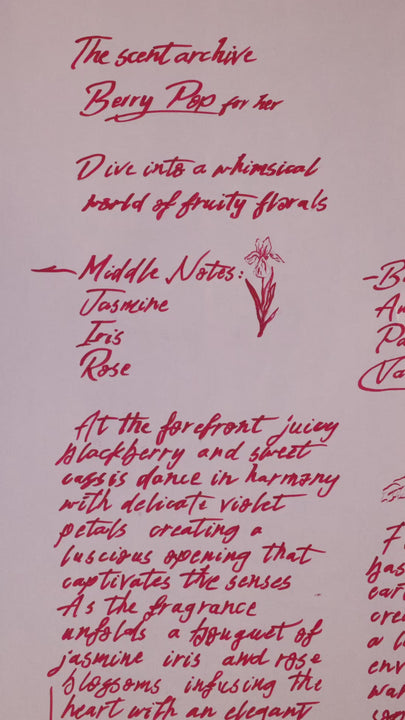 The scent archive
Berry Pop for her
Dive into a whimsical
world of fruity florals
Middle Notes:
Jasmine
Iris
Rose
At the forefront juicy
blackberry and sweet
cassis dance in harmony
with delicate violet
petals creating a
luscious opening that
captivates the senses
As the fragrance
unfolds a bouquet of
jasmine iris and rose
blossoms infusing the
heart with an elegant